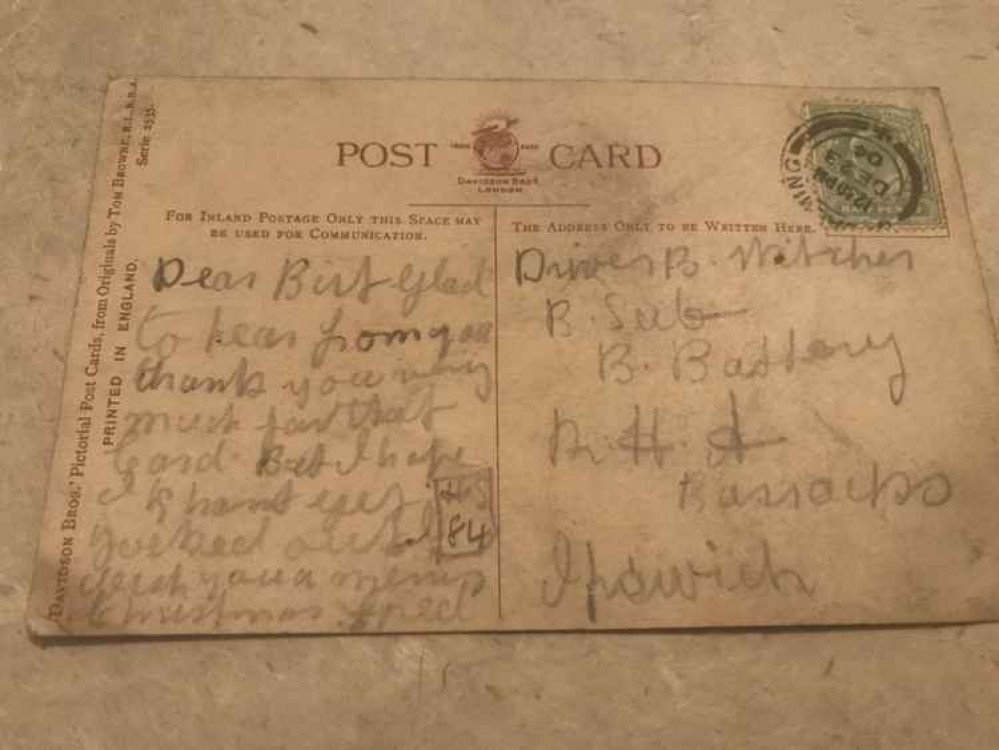 POST CARD
TRADE MARK
DAVIDSON BROS
LONDON
FOR INLAND POSTAGE ONLY THIS SPACE MAY
BE USED FOR COMMUNICATION.
THE ADDRESS ONLY TO BE WRITTEN HERE.
DAVIDSON BROS.' Pictorial Post Cards, from Originals by TOM BROWNE, R.I., R.B.A.
Serie 2535.
PRINTED IN ENGLAND.
12.30 PM
DE 23
06
HALF PENNY
Dear Birt Glad
to hear from you
thank you very
much for that
Card But I hope
I
out
you a
Christmas Fred
84
Driver B. Witcher
B. Sub
B. Battery
R. H. A
Barracks
Ipswich